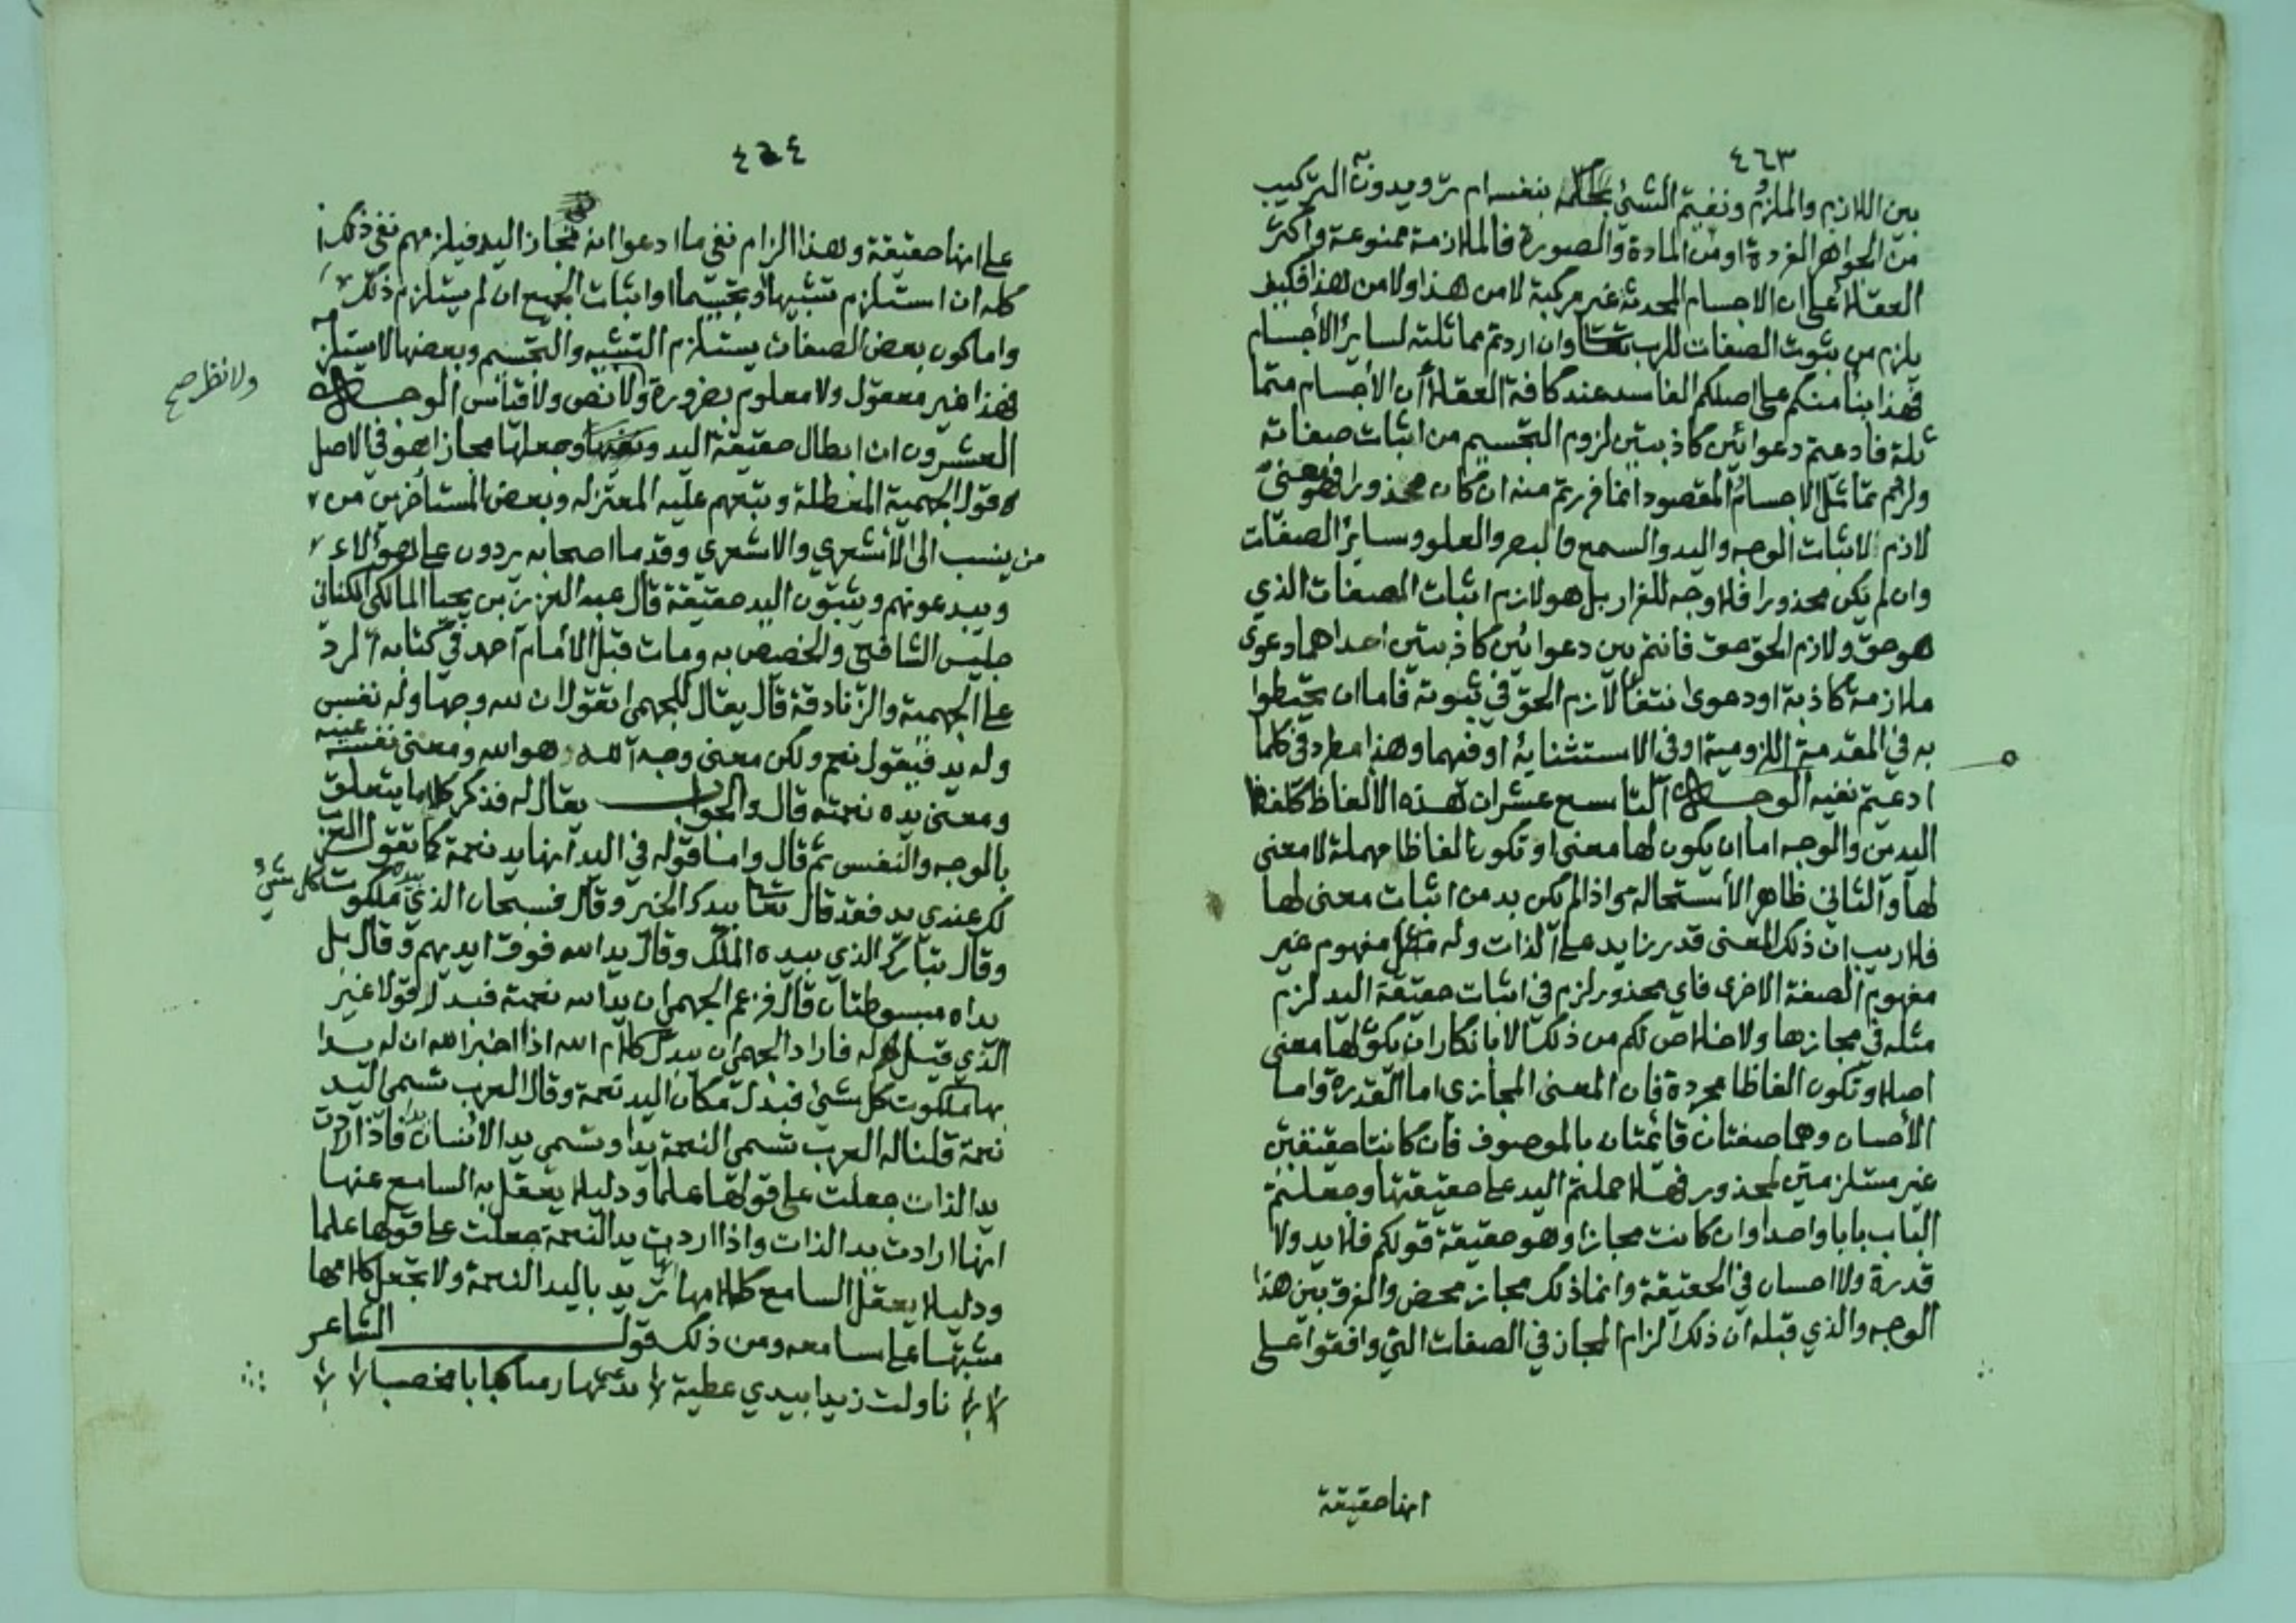 ٤٦٣
بين اللازم والملزوم ونفيتم الشئ بنفسه ام تريدون به التركيب
من الجواهر الفردة او من المادة والصورة فالملازمة ممنوعة واكثر
العقلا على ان الاجسام المحدثة غير مركبة لا من هذا ولا من هذا فكيف
يلزم من ثبوت الصفات للرب تعالى وان اردتم مماثلته لساير الاجسام
فهذا بنا منكم على اصلكم الفاسد عند كافة العقلا ان الاجسام متما
ثلة فادعيتم دعوائين كاذبتين لزوم التجسيم من اثبات صفاته
ولزوم تماثل الاجسام المقصود انما فررتم منه ان كان محذورا فهو معنى
لازم لاثبات الوجه واليد والسمع والبصر والعلو وساير الصفات
وان لم يكن محذورا فلا وجه للفرار بل هو لازم اثبات الصفات الذي
هو حق ولازم الحق حق فانتم بين دعوائين كاذبتين احداهما دعوى
ملازمة كاذبة او دعوى انتفا لازم الحق في ثبوته فاما ان تخبطوا
به في المقدمة اللزومية او في الاستثنائية او فيهما وهذا مطرد في كلما
ادعيتم نفيه الوجه التاسع عشر ان هذه الالفاظ كلفظ
اليدين والوجه اما ان يكون لها معنى او تكون الفاظا مهملة لا معنى
لها والثاني ظاهر الاستحالة واذا لم يكن بد من اثبات معنى لها
فلا ريب ان ذلك المعنى قدر زايد على الذات وله مفهوم غير
مفهوم الصفة الاخرى فاي محذور لزم في اثبات حقيقة اليد لزم
مثله في مجازها ولا خلاص لكم من ذلك الا بانكار ان يكون لها معنى
اصلا وتكون الفاظا مجردة فان المعنى المجازي اما القدرة واما
الاحسان وهما صفتان قائمتان بالموصوف فان كانتا حقيقتين
غير مستلزمتين لمحذور فهلا حملتم اليد على حقيقتها وجعلتم
الباب بابا واحدا وان كانت مجازا وهو حقيقة قولكم فلا يد ولا
قدرة ولا احسان في الحقيقة وانما ذلك مجاز محض والفرق بين هذا
الوجه والذي قبله ان ذلك الزام المجاز في الصفات التي وافقوا على
انها حقيقة
٤٦٤
على انها حقيقة وهذا الزام نفي ما ادعوا انه مجاز اليد فيلزمهم نفي ذلك
كله ان استلزم تشبيها وتجسيما او اثبات الجميع ان لم يستلزم ذلك
واما كون بعض الصفات يستلزم التشبيه والتجسيم وبعضها لا يستلزمه
فهذا غير معقول ولا معلوم بضرورة ولا نص ولا قياس الوجه
ولا نظر صح
العشرون ان ابطال حقيقة اليد ونفيها وجعلها مجازا هو في الاصل
قول الجهمية المعطلة وتبعهم عليه المعتزله وبعض المستاخرين من
من ينسب الى الاشعري والاشعري وقدما اصحابه يردون على هؤلاء
ويبدعونهم ويثبتون اليد حقيقة قال عبد العزيز بن يحيا المالكي الكناني
جليس الشافعي والخصيص به ومات قبل الامام احمد في كتابه الرد
على الجهمية والزنادقة قال يقال للجهمي اتقول ان لله وجها وله نفس
وله يد فيقول نعم ولكن معنى وجه الله هو الله ومعنى نفسه عينه
ومعنى يده نعمته قال والجواب يقال له فذكر كلاما يتعلق
بالوجه والنفس ثم قال واما قوله في اليد انها يد نعمة كما تقول العرب
لك عندي يد فقد قال تعالى بيدك الخير وقال فسبحان الذي بيده ملكوت كل شئ
وقال تبارك الذي بيده الملك وقال يد الله فوق ايديهم وقال بل
يداه مبسوطتان قال فزعم الجهمي ان يد الله نعمته فبدل قولا غير
الذي قيل له فاراد الجهمي ان يبدل كلام الله اذ اخبر الله ان له يدا
بها ملكوت كل شئ فبدل مكان اليد نعمة وقال العرب تسمي اليد
نعمة قلنا له العرب تسمي النعمة يدا وتسمي يد الانسان يدا فاذا ارادت
يد الذات جعلت على قولها علما ودليلا يعقل به السامع عنها
انها ارادت يد الذات واذا اردت يد النعمة جعلت على قولها علما
ودليلا يعقل السامع كلامها انها تريد باليد النعمة ولا تجعل كلامها
مشتبها على سامعه ومن ذلك قول الشاعر
ناولت زيدا بيدي عطية